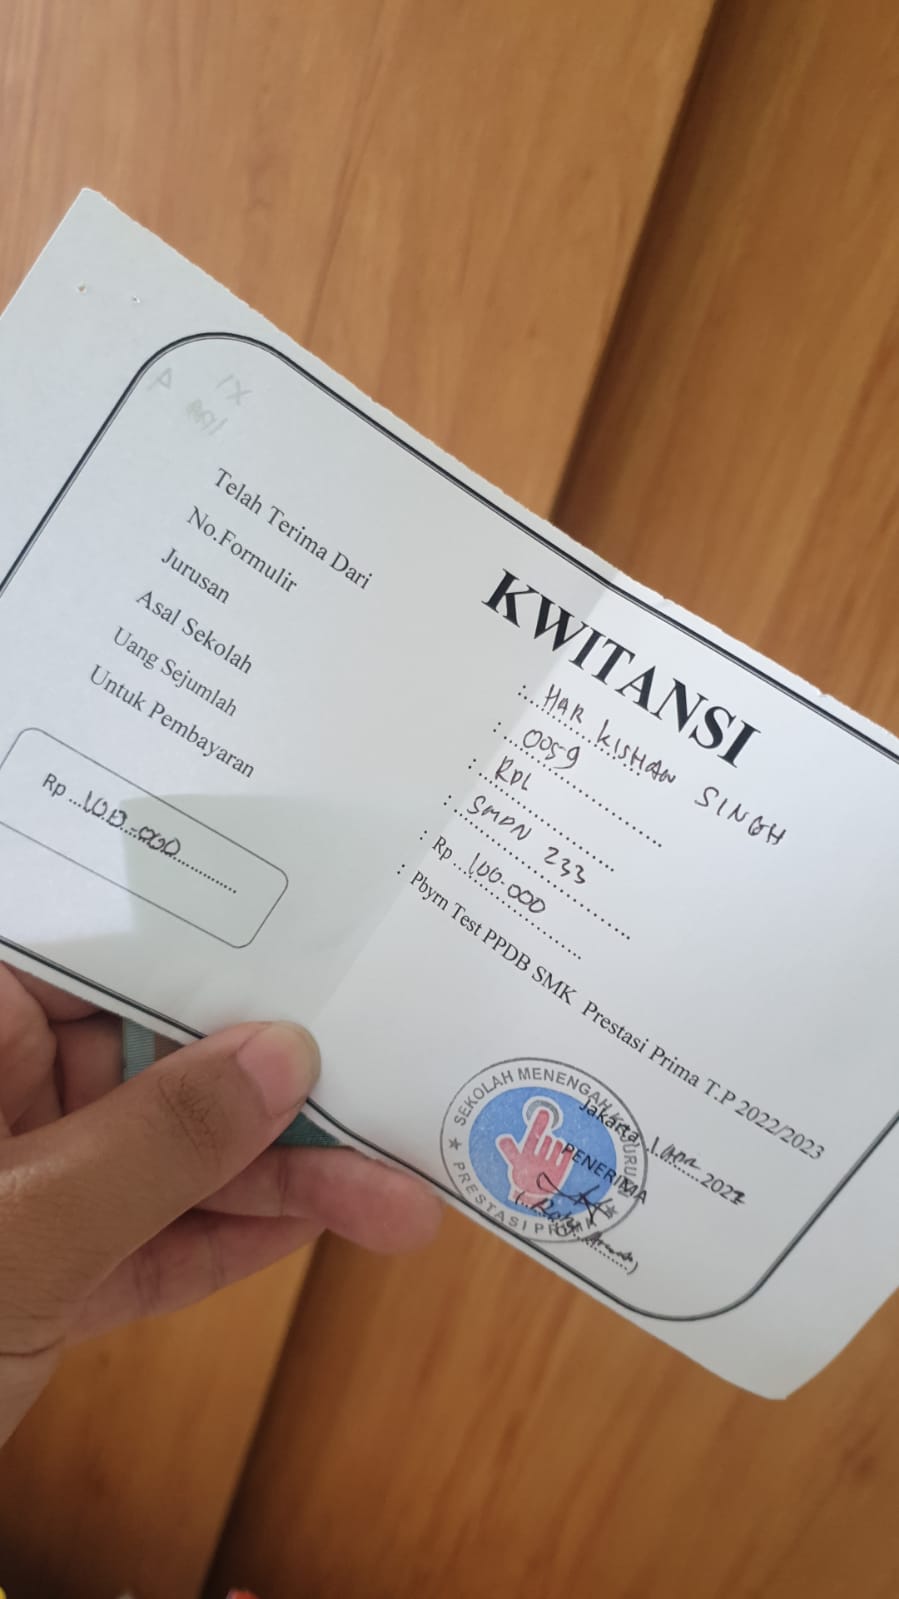 KWITANSI
Telah Terima Dari : HAR KISHAN SINGH
No.Formulir : 0059
Jurusan : RPL
Asal Sekolah : SMPN 233
Uang Sejumlah : Rp 100.000
Untuk Pembayaran : Pbym Test PPDB SMK Prestasi Prima T.P 2022/2023
Rp 100.000
Jakarta, 2022
PENERIMA
SEKOLAH MENENGAH KEJURUAN
PRESTASI PRIMA